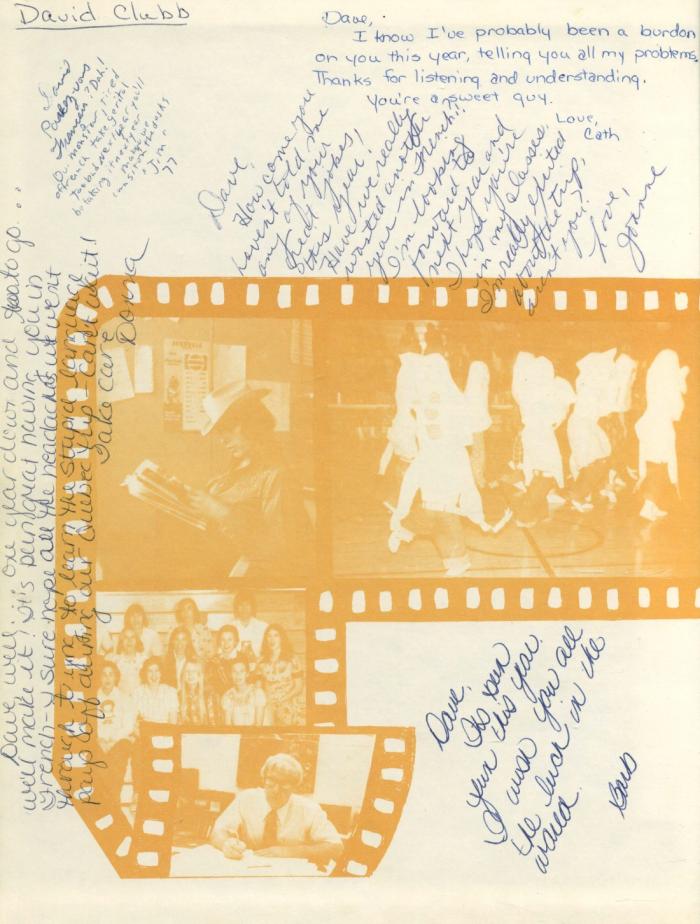 David Clubb
Dave,
I know I've probably been a burdon
on you this year, telling you all my problems.
Thanks for listening and understanding.
You're a sweet guy.
Love,
Cath
Parlez-vous
Jim
77
Dave,
How come you
haven't told me
any of your
great jokes,
this year!
Have we really
wasted another
year in French!!
I'm looking
forward to
next year and
I hope you're
in my classes.
I'm really excited
about the trip,
aren't you?
Love,
Joanne
Dave well it's one year down and to go...
we'll make it! It's been great having you in
French - I sure hope all the headaches we went
through trying to learn the stupid language
pays off during our Quebec trip. Can't wait!
Take care
Donna
Dave,
Its been
fun this year.
I wish you all
the luck in the
world.
Barb